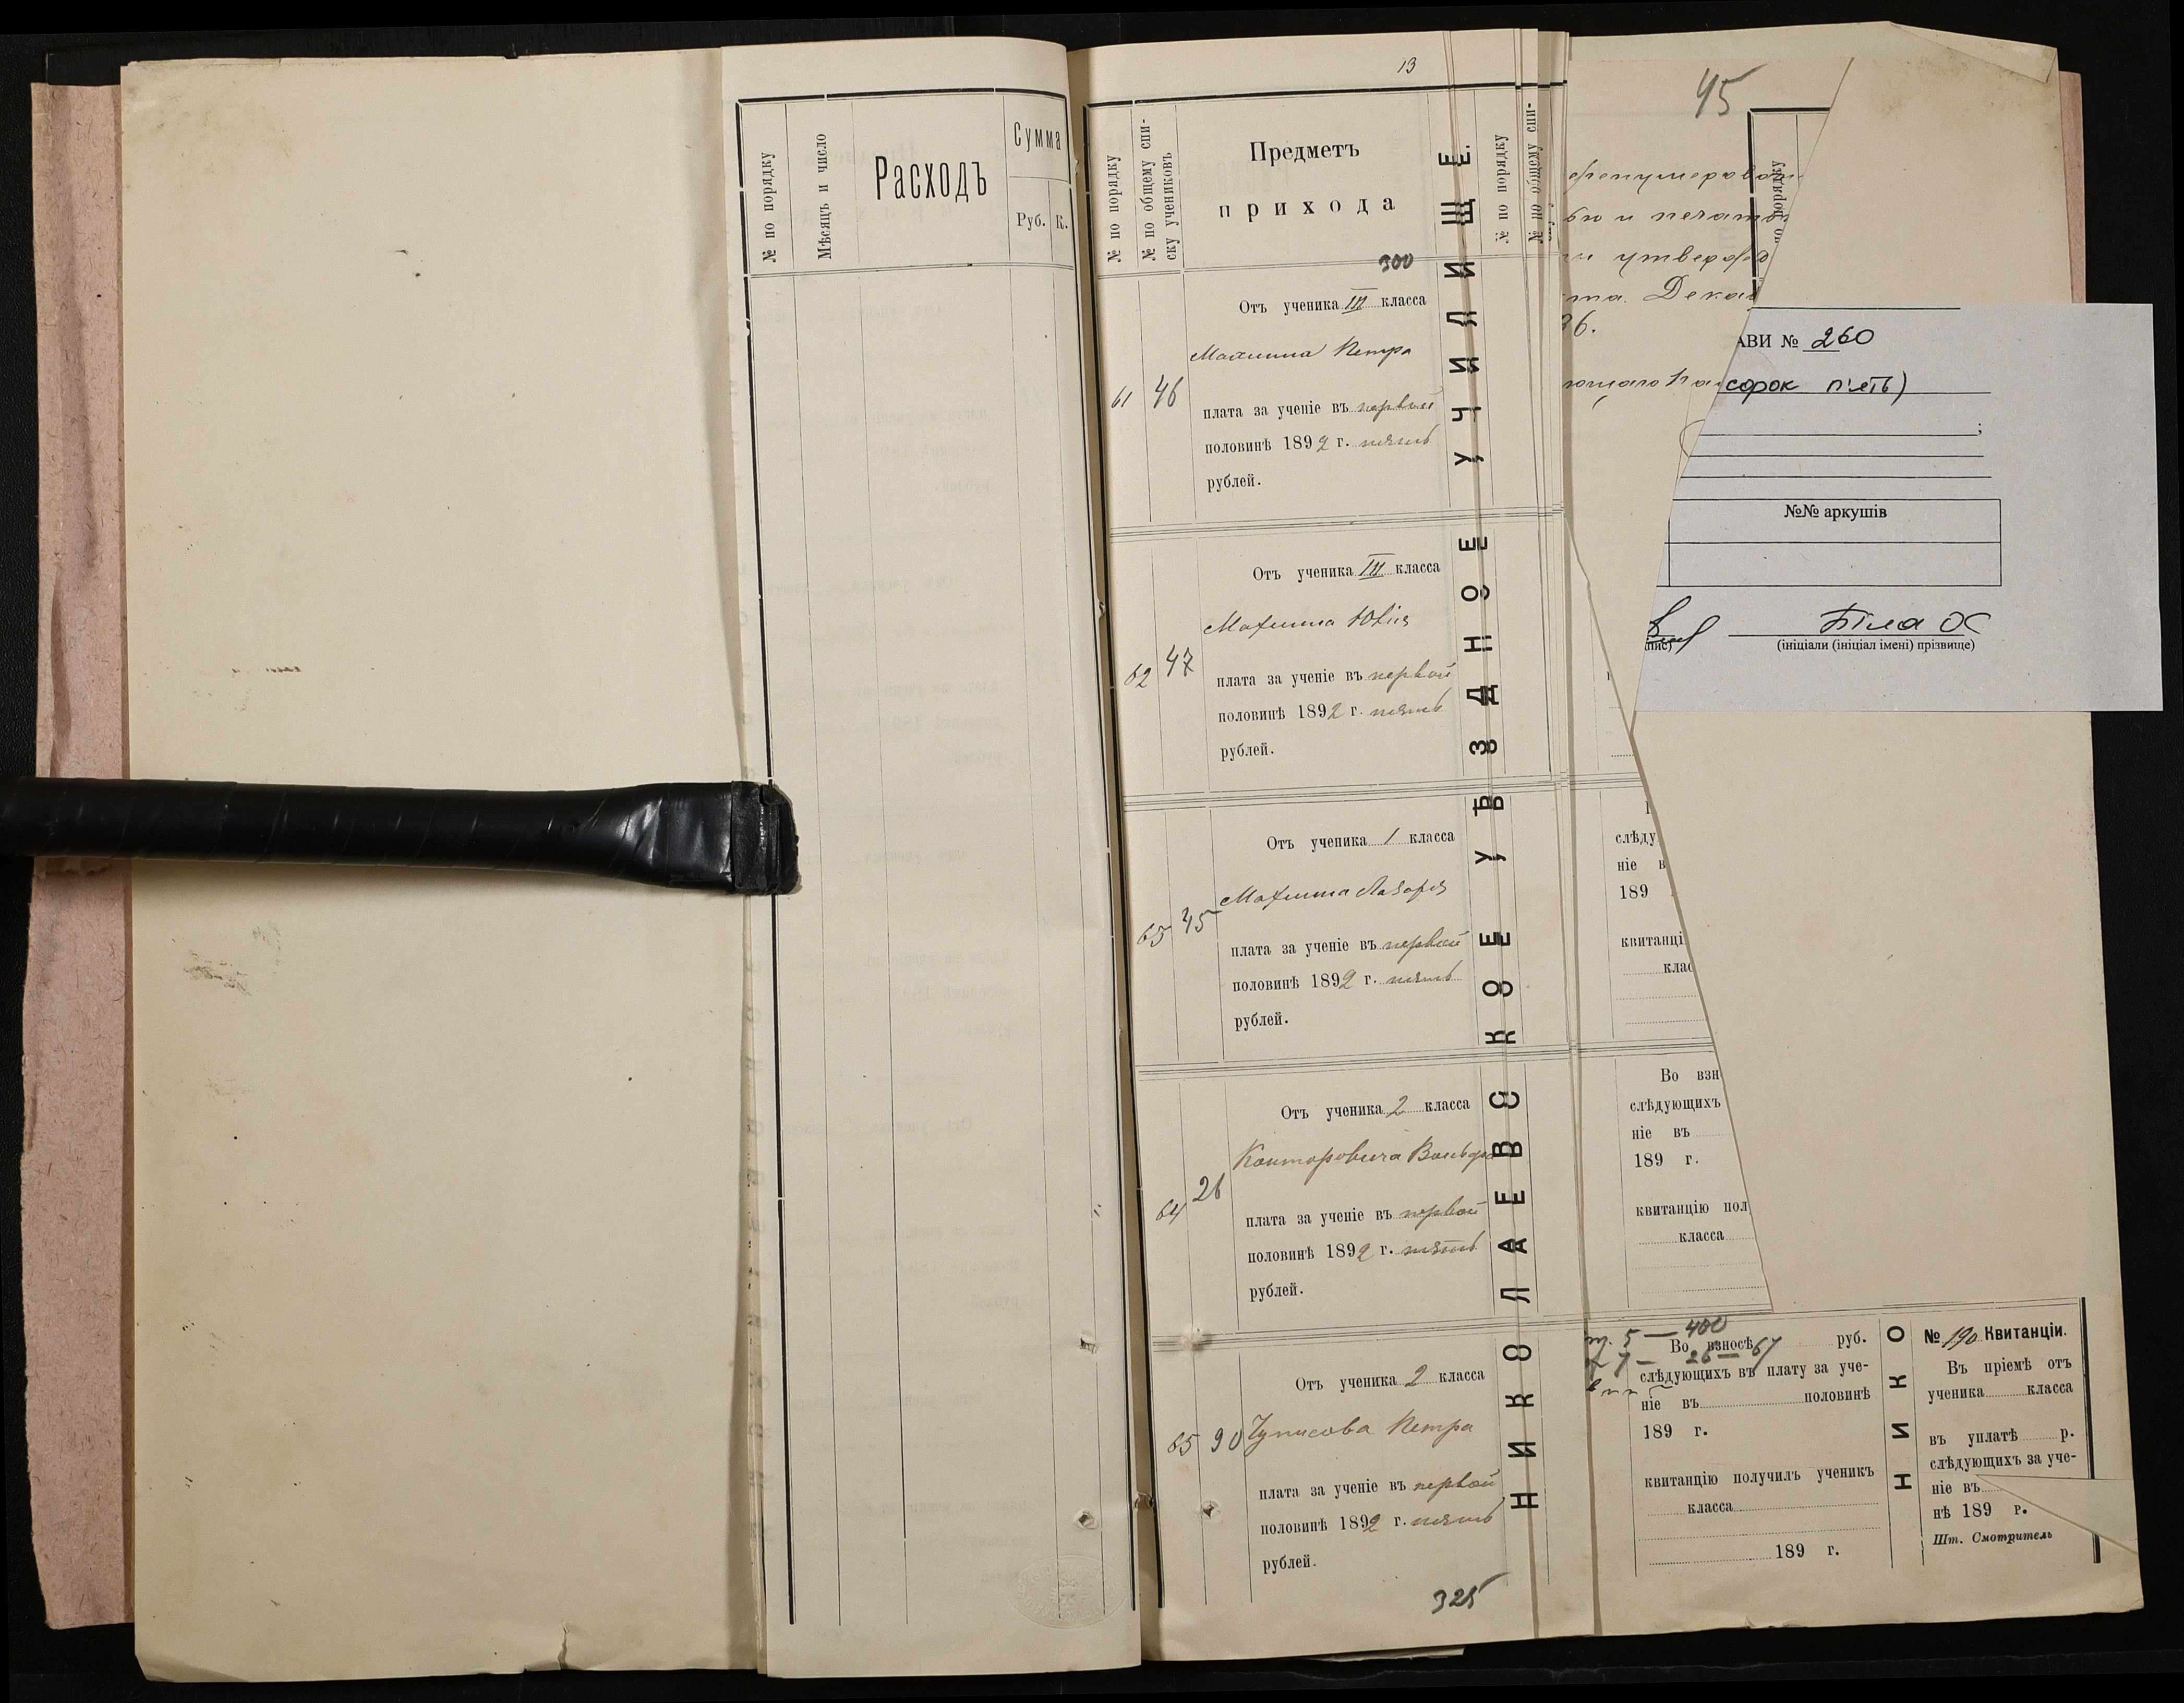 № по порядку
Мѣсяцъ и число
Расходъ
Сумма
Руб.
К.
13
№ по порядку
№ по общему спи-
ску учениковъ
Предметъ
прихода
300
Отъ ученика III класса
Махлина Петра
61 46
плата за ученіе въ первой
половинѣ 1892 г. пять
рублей.
Отъ ученика III класса
Махлина Юлія
62 47
плата за ученіе въ первой
половинѣ 1892 г. пять
рублей.
Отъ ученика 1 класса
Махлина Лазаря
63 45
плата за ученіе въ первой
половинѣ 1892 г. пять
рублей.
Отъ ученика 2 класса
Канторовича
64 26
плата за ученіе въ первой
половинѣ 1892 г. пять
рублей.
Отъ ученика 2 класса
65 90 Чумисова Петра
плата за ученіе въ первой
половинѣ 1892 г. пять
рублей.
325
НИКОЛАЕВСКОЕ УѢЗДНОЕ УЧИЛИЩЕ.
№ по порядку
№ по общему спи-
45
по порядку
и печатью
и утверж
та. Декаб
АВИ № 260
сорок п'ять)
;
№№ аркушів
Біла О
(ініціали (ініціал імені) прізвище)
слѣду
ніе в
189
квитанці
клас
Во взн
слѣдующихъ
ніе въ
189 г.
квитанцію пол
класса
5 — 400
Во взносѣ руб.
слѣдующихъ въ плату за уче-
ніе въ половинѣ
189 г.
квитанцію получилъ ученикъ
класса
189 г.
НИКО
№ 190 Квитанціи.
Въ пріемѣ отъ
ученика класса
въ уплатѣ р.
слѣдующихъ за уче-
ніе въ
нѣ 189 г.
Шт. Смотритель